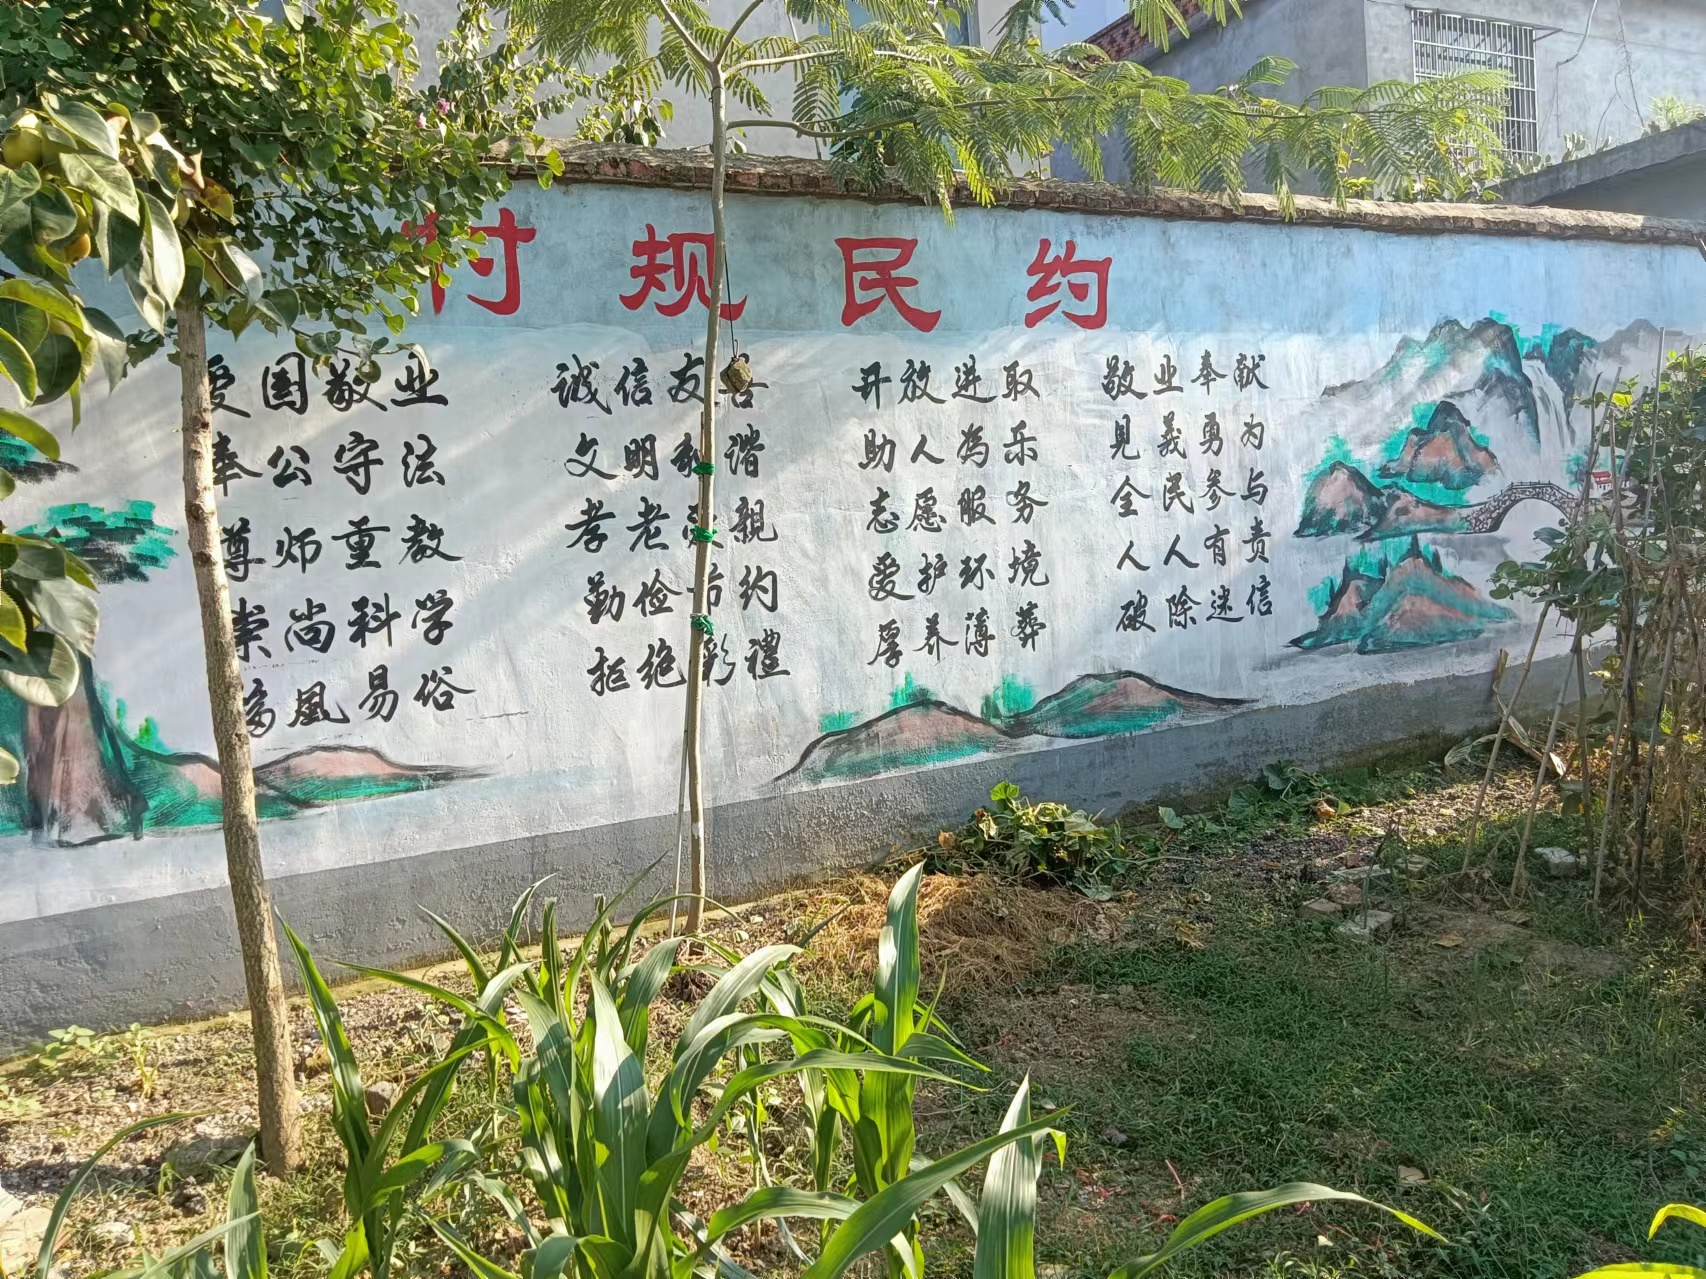 村规民约
爱国敬业
奉公守法
尊师重教
崇尚科学
移風易俗
诚信友善
文明和谐
孝老爱親
勤俭节约
拒绝彩禮
开放进取
助人為乐
志愿服务
爱护环境
厚养薄葬
敬业奉献
見義勇为
全民参与
人人有责
破除迷信